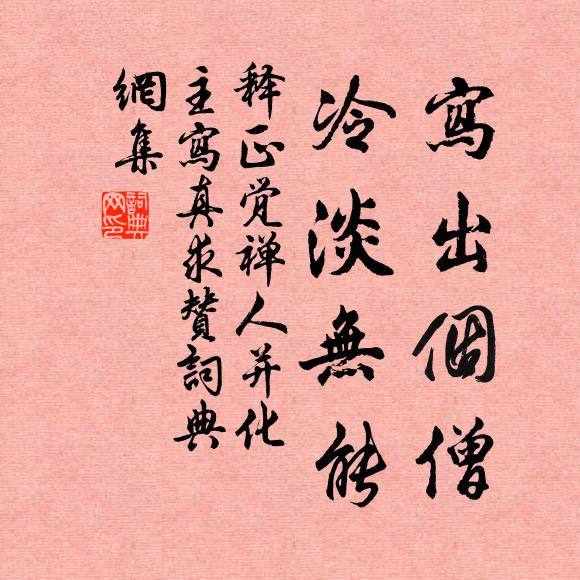 寫出個僧
冷淡無能
释正觉禅人并化
主寫真求贊詞典
網集
詞典网印